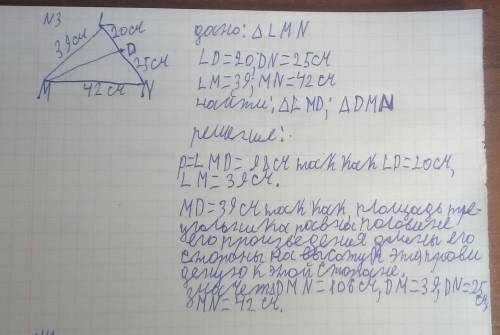 N3
L
20см
39см
D
25см
M
42см
N
дано: △LMN
LD=20; DN=25см
LM=39; MN=42см
найти: △LMD; △DMN
решение:
P=LMD= 98см так как LD=20см,
LM=39см.
MD=39см так как, площадь тре-
угольника равна половине
его произведения длины его
стороны на высоту к этапрови
деную к этой стороне.
значеть DMN=106см, DM=39, DN=25
см,
MN=42см.